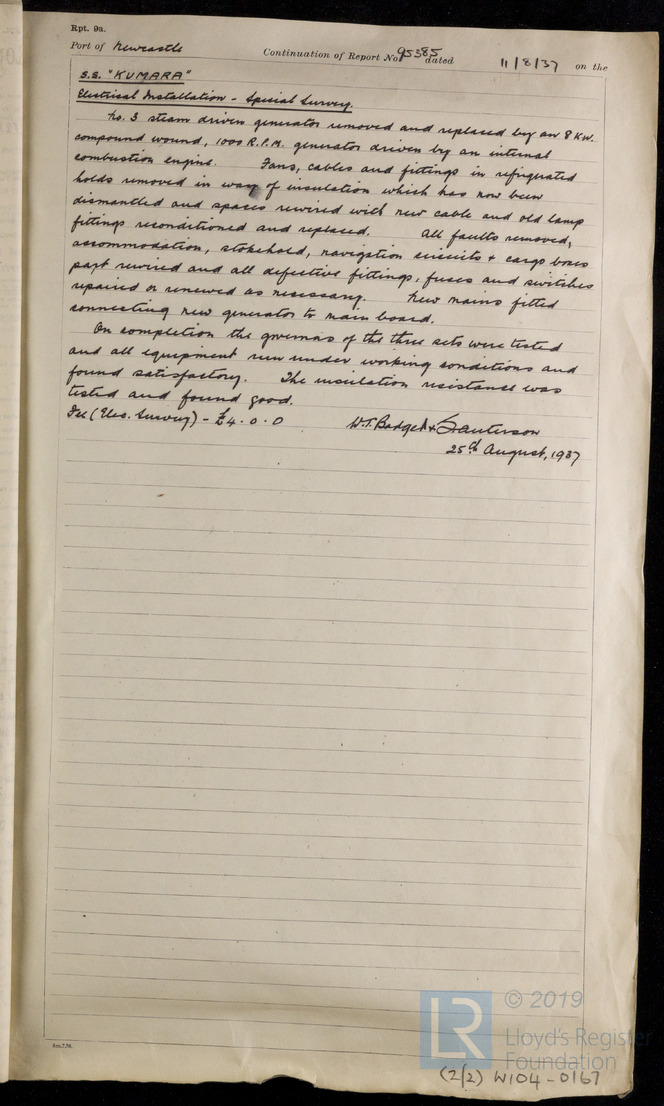 Rpt. 9a.
Port of Newcastle Continuation of Report No 95385 dated 11/8/37 on the
S.S. "KUMARA"
Electrical Installation - Special Survey.
No. 3 steam driven generator removed and replaced by an 8 KW.
compound wound, 1000 R.P.M. generator driven by an internal
combustion engine. Fans, cables and fittings in refrigerated
holds removed in way of insulation which has now been
dismantled and spaces rewired with new cable and old lamp
fittings reconditioned and replaced. All faults removed,
accommodation, stokehold, navigation circuits + cargo boxes
part rewired and all defective fittings, fuses and switches
repaired or renewed as necessary. New mains fitted
connecting new generator to main board.
On completion the governors of the three sets were tested
and all equipment run under working conditions and
found satisfactory. The insulation resistance was
tested and found good.
Fee (Elec. Survey) - £4.0.0 W.T. Badger +
25th August, 1937
© 2019
LR
Lloyd's Register
Foundation
(2/2) W104-0167